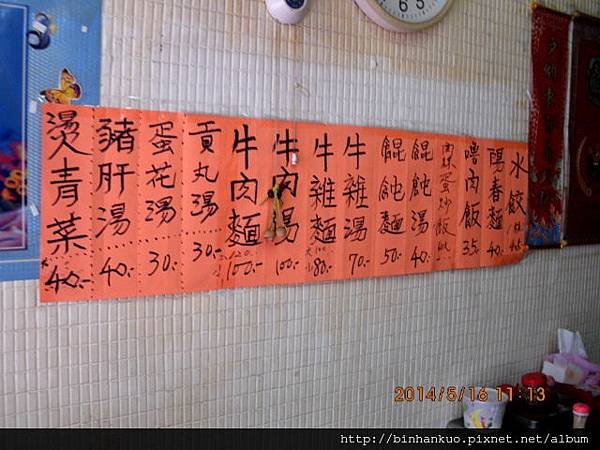 水餃
陽春麵 40.-
嚕肉飯 35
蛋炒飯
餛飩湯 40.-
餛飩麵 50.-
牛雜湯 70.-
牛雜麵 80.-
牛肉湯 100.-
牛肉麵 100.-
貢丸湯 30.-
蛋花湯 30.-
豬肝湯 40.-
燙青菜 40.-
2014/5/16 11:13
http://binhankuo.pixnet.net/album